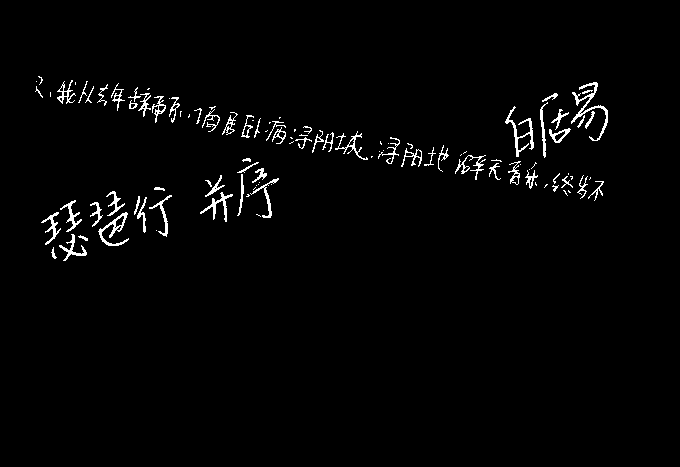 又，我从去年辞帝京，谪居卧病浔阳城，浔阳地僻无音乐，终岁不
白居易
琵琶行 并序